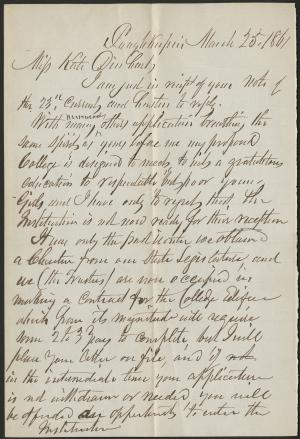 Poughkeepsie March 25. 1861
Miss Kate
I am just in receipt of your Note of
the 23d, Current, and hasten to reply.
With numerous others applications breathing the
same spirit as yours before me my proposed
College is designed to
education to respectable but poor young
Girls and I have only to regret that the
Institution is not now ready for their reception
It was only the past Winter we obtained
a Charter from our State Legislature, and
we (the Trustees) are now occupied in
making a contract for the College Edifice
which from its magnitude will require
some 2 to 3 years to complete, but I will
place your letter on file and if
in the intermediate time your application
is not withdrawn or needed you will
be afforded an opportunity to enter the
Institution